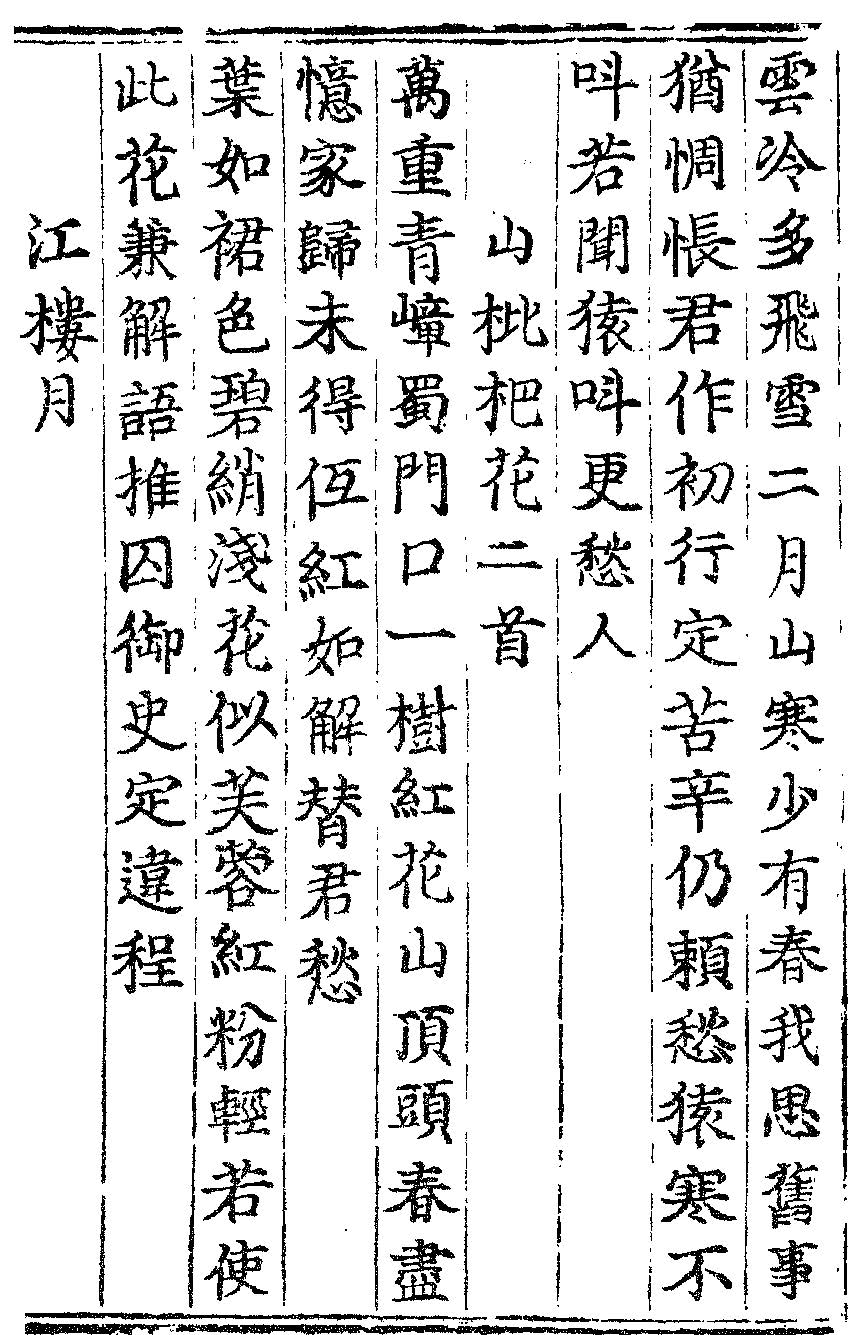 雲冷多飛雪二月山寒少有春我思舊事
猶惆悵君作初行定苦辛仍賴愁猿寒不
呌若聞猿呌更愁人
山枇杷花二首
萬重青嶂蜀門口一樹紅花山頂頭春盡
憶家歸未得伍紅如解替君愁
葉如裙色碧綃淺花似芙蓉紅粉輕若使
此花兼解語推囚御史定違程
江樓月